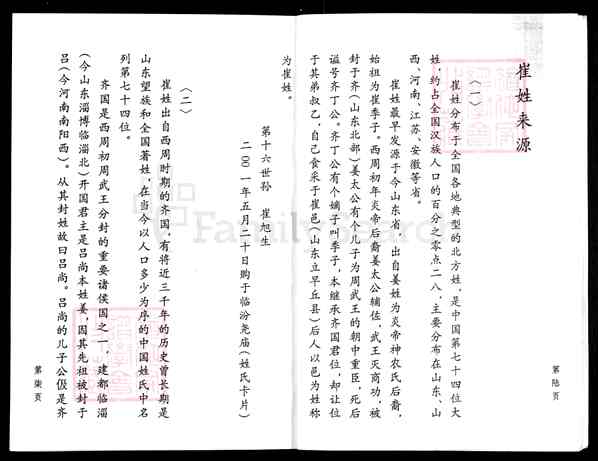 崔姓来源
（一）
崔姓分布于全国各地典型的北方姓，是中国第七十四位大
姓，约占全国汉族人口的百分之零点二八，主要分布在山东、山
西、河南、江苏、安徽等省。
崔姓最早发源于今山东省，出自姜姓为炎帝神农氏后裔，
始祖为崔季子。西周初年炎帝后裔姜太公辅佐，武王灭商功，被
封于齐（山东北部）姜太公有个儿子为周武王的朝中重臣，死后
谥号齐丁公。齐丁公有个嫡子叫季子，本继承齐国君位，却让位
于其弟叔乙，自己食采于崔邑（山东立早丘县）后人以邑为姓称
第陆页
为崔姓。
第十六世孙　崔旭生
二〇〇一年五月二十日购于临汾尧庙（姓氏卡片）
（二）
崔姓出自西周时期的齐国。有将近三千年的历史曾长期是
山东望族和全国著姓，在当今以人口多少为序的中国姓氏中名
列第七十四位。
齐国是西周初周武王分封的重要诸侯国之一，建都临淄
（今山东淄博临淄北）开国君主是吕尚本姓姜，因其先祖被封于
吕（今河南南阳西）。从其封姓故曰吕尚。吕尚的儿子公伋是齐
第柒页
FamilySearch